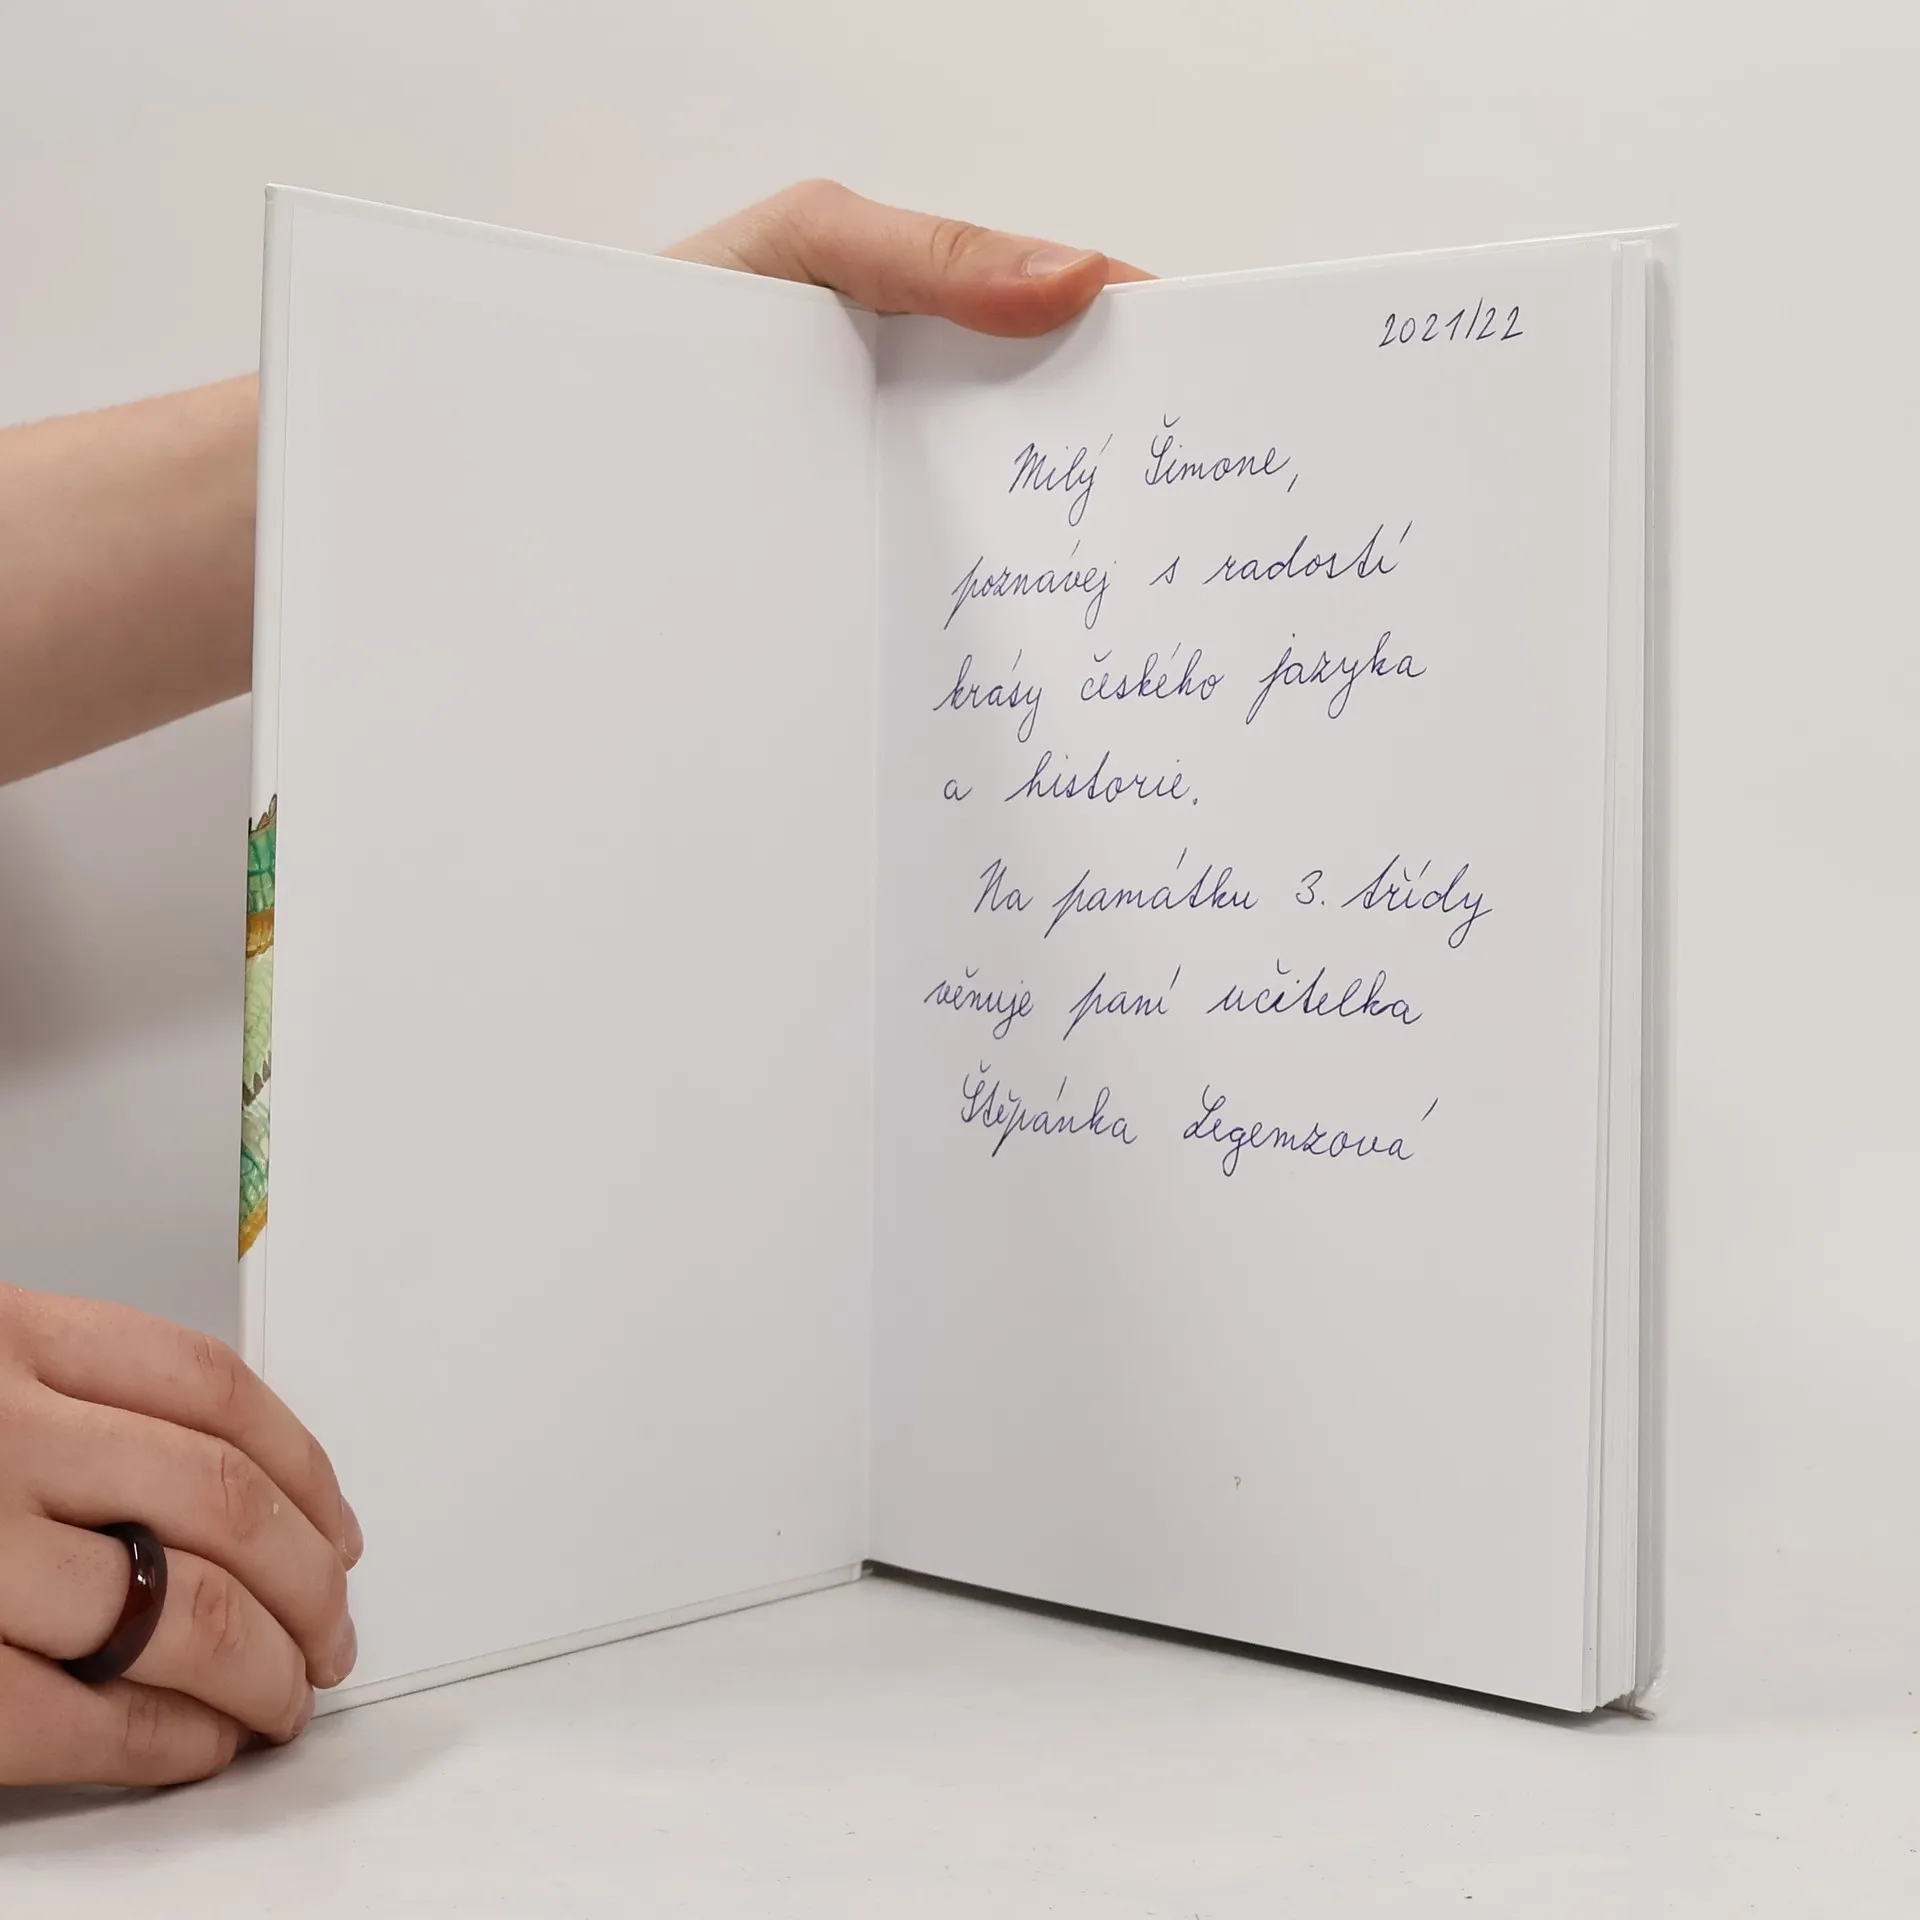 2021/22
Milý Šimone,
poznávej s radostí
krásy českého jazyka
a historie.
Na památku 3. třídy
věnuje paní učitelka
Štěpánka Legemzová